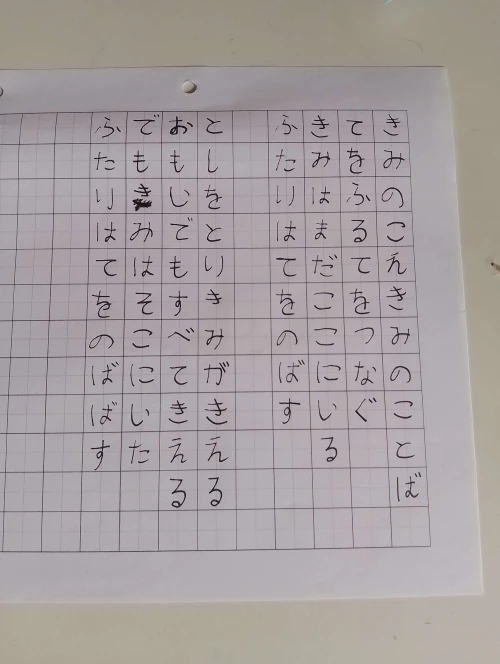 きみのこえきみのことば
てをふるてをつなぐ
きみはまだここにいる
ふたりはてをのばす
としをとりきみがきえる
おもいでもすべてきえる
でもきみはそこにいた
ふたりはてをのばばす